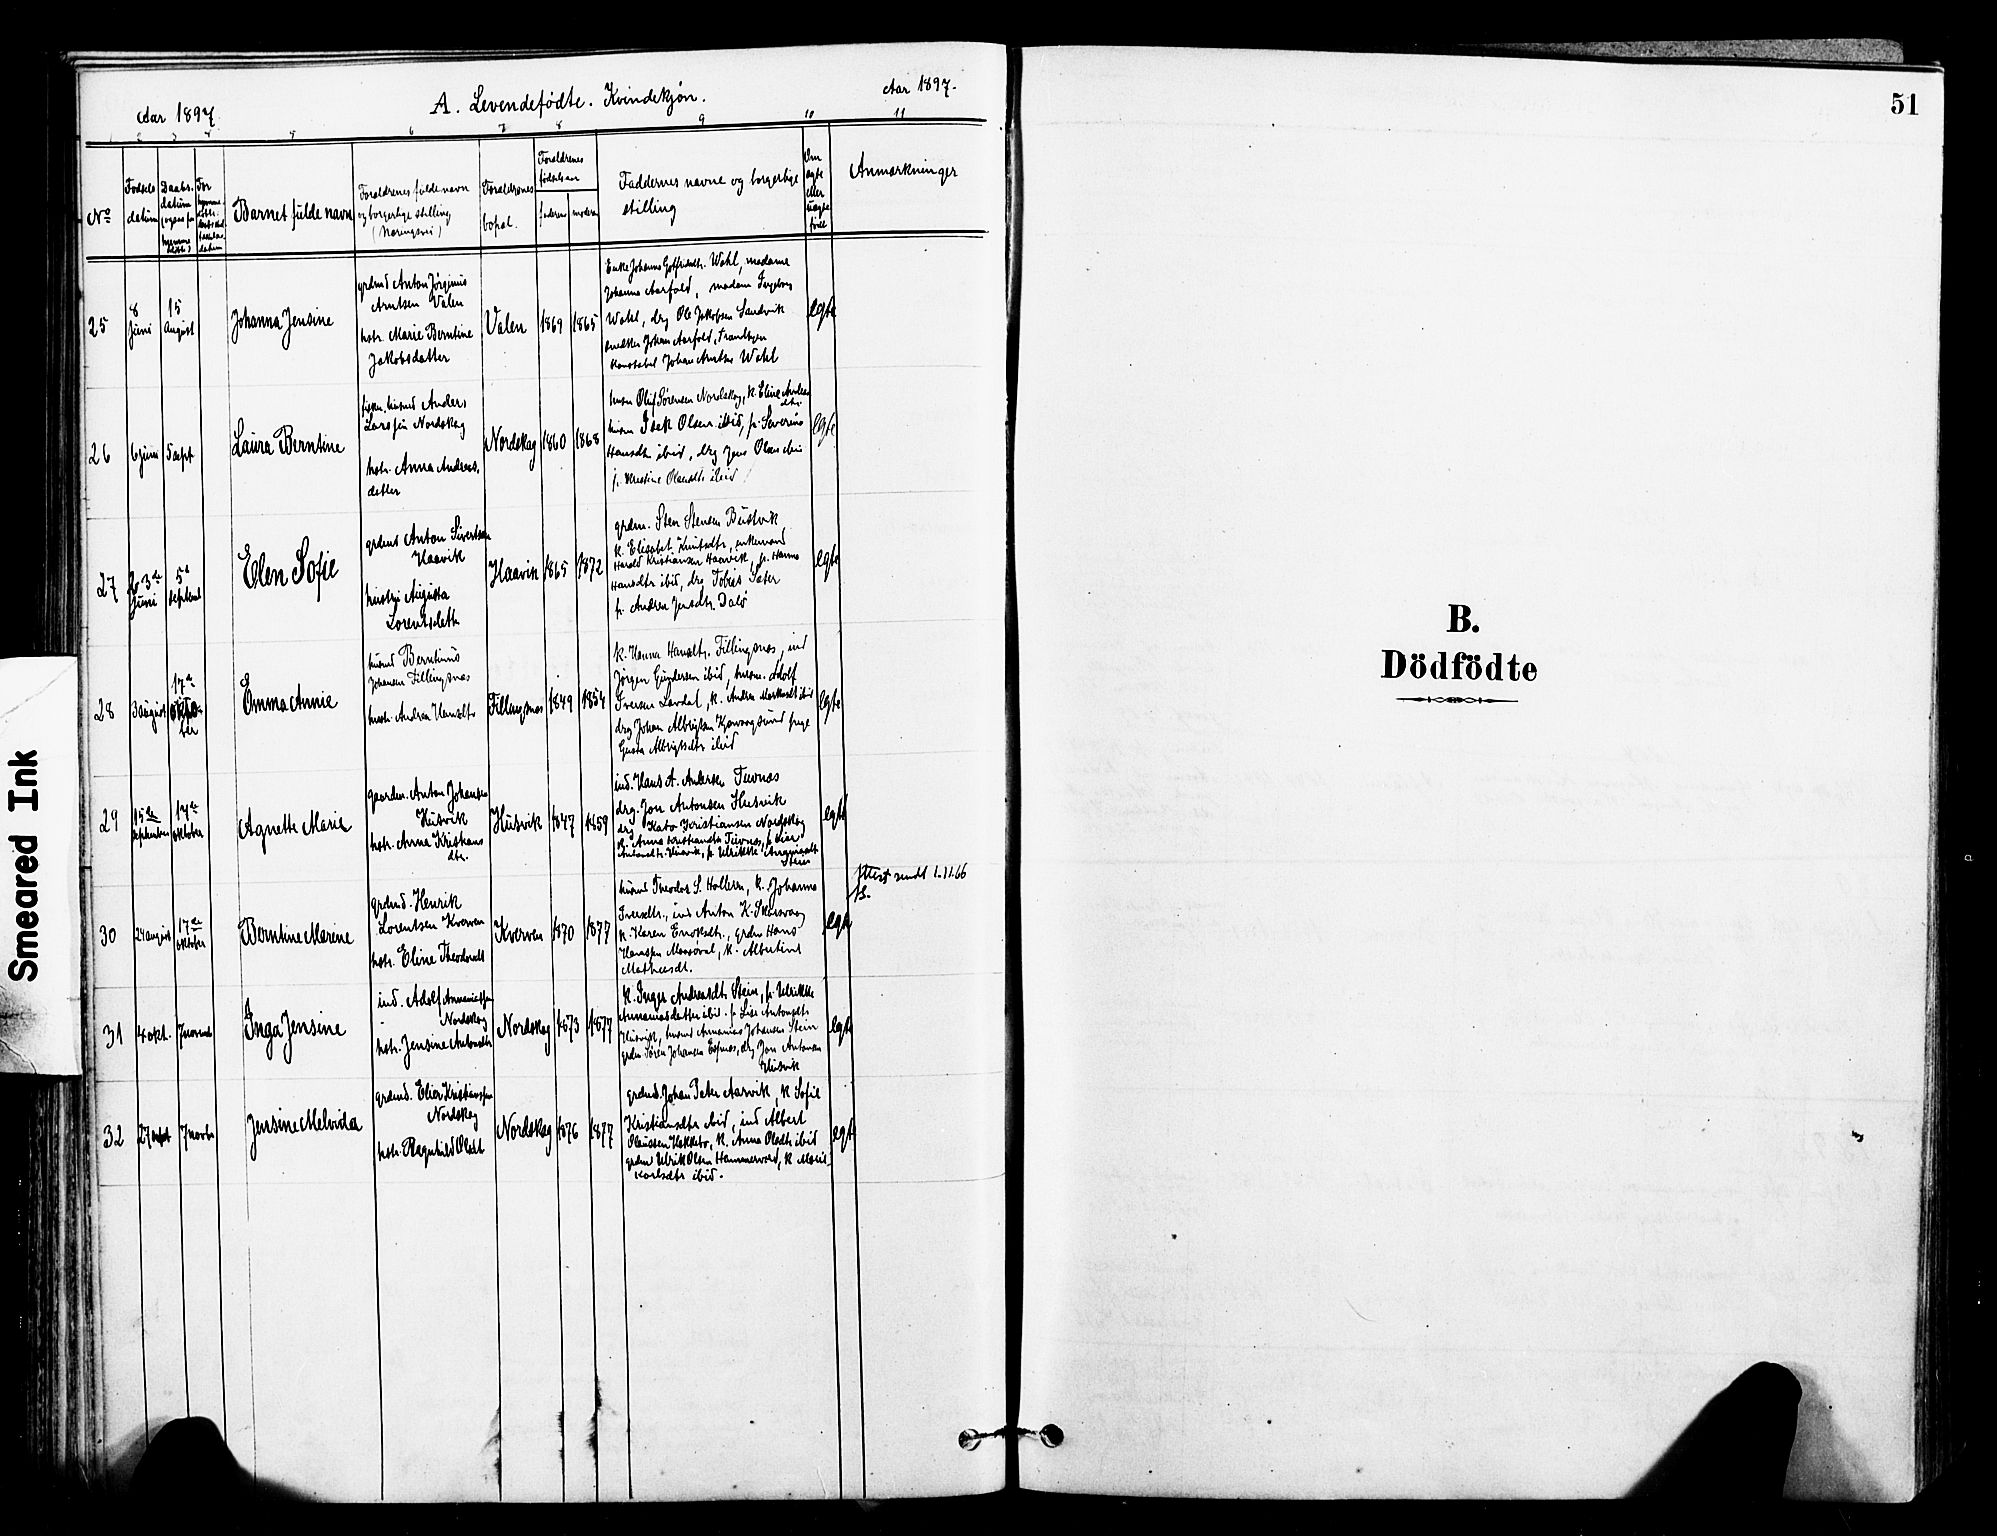 Aar 1897
A. Levendefödte. Kvindekjøn.
Aar 1897.
2 3 4 5 6 7 8 9 10 11
No
Fødsels datum
Daabs. datum
Barnets fulde navn
Forældrenes fulde navn
og borgerlige stilling
(Næringsvei)
Forældrenes
bopæl.
Forældrenes
fødselsaar
faderens
moderens
Faddernes navne og borgerlige
stilling
Om
ægte
eller
uægte
født
Anmærkninger
25
8
Juni
15
August
Johanna Jensine
grdmd Anton Jørginus
Arntsen Valen
hstr. Marie Berntine
Jakobsdatter
Valen
1869
1865
Wahl, madame
Johanna Aarfold, madam Ingeborg
Wahl, drg Ole Jakobsen Sandvik
Johan Aarfold, Trondhjem
Johan Arntsen Wahl
egte
26
6 juni
5 sept
Laura Berntine
Anders
Larssen Nordskag
hstr. Anna Andreas.
datter
Nordskag
1860
1868
husm Oluf Sørensen Nordskag, k. Eline
husm Isak Olsen ibid, p. Severine
Hansdtr ibid, drg Jens Olsen ibid
p. Kristine Olausdtr ibid
egte
27
Juni
5te
september
Elen Sofie
grdmd Anton Sivertsen
Haavik
hustru Augusta
Lorentsdatter
Haavik
1865
1872
grdm. Sten Stensen Bustvik
k. Elisabet Knutsdtr, enkemand
Harald Kristiansen Haavik, p. Hanna
Hansdtr ibid, drg Tobias Sæter
p. Andrea Jensdtr. Dalø
egte
28
3 august
17de
oktober
Emma Annie
husmd Berntinus
Johansen Fillingsnæs
hustr. Andrea Hansdtr
Fillingsnæs
1849
1854
k. Hanna Hansdtr. Fillingsnæs, ind
Jørgen Gundersen ibid, husm. Adolf
Iversen Lervdal, k. Andrea Markusdt ibid
drg Johan Albrigtsen pige
Albrigtsdtr ibid
egte
29
15de
september
17de
oktober
Agnette Marie
gaardm. Anton Johansen
Husvik
hstr. Anna Kristians
dtr.
Husvik
1847
1859
ind. Hans A. Andersen Tuvnæs
drg. Jon Antonsen Husvik
drg Kato Kristiansen Nordskag
k. Anna Kristiansdtr Tuvnæs, p. Lise
Antonsdtr. Husvik, p. Ulrikke
Stein
egte
30
24 august
17de
oktober
Berntine Marene
grdmd. Henrik
Lorentsen Kverven
hstr. Eline Theodorsdt
Kverven
1870
1877
husmd Theodor S. Hallern, k. Johanna
Iversdtr., ind Anton K. Skarsvaag
k. Karen Enoksdtr., grdm Hans
Hanssen Maasøval, k. Albertine
Mathiasdt.
egte
Attest sendt 1.11.66
31
4 okt.
7 novemb
Inga Jensine
ind. Adolf Annaniassen
Nordskag
hstr. Jensine Antonsdtr
Nordskag
1873
1877
k. Inger Andreasdt. Stein, p. Ulrikke
Annaniasdatter ibid. p. Lise Antonsdtr
Husvik, husmd Annanias Johansen Stein
grdm Søren Johansen Espnæs, drg Jon Antonsen
Husvik
egte
32
27 sept
7 novbr
Jensine Melvida
grdmd. Elier Kristianssen
Nordskag
hstr. Ragnhild Olsdt
Nordskag
1876
1877
grdmd. Johan Peter Aarvik, k Sofie
Kristiansdtr ibid, ind Albert
Olaussen Hekkebo, k. Anna Olsdtr ibid
grdm Ulrik Olsen Hammervold, k Marie
Karlsdtr ibid.
egte
51
B.
Dödfödte
Smeared Ink